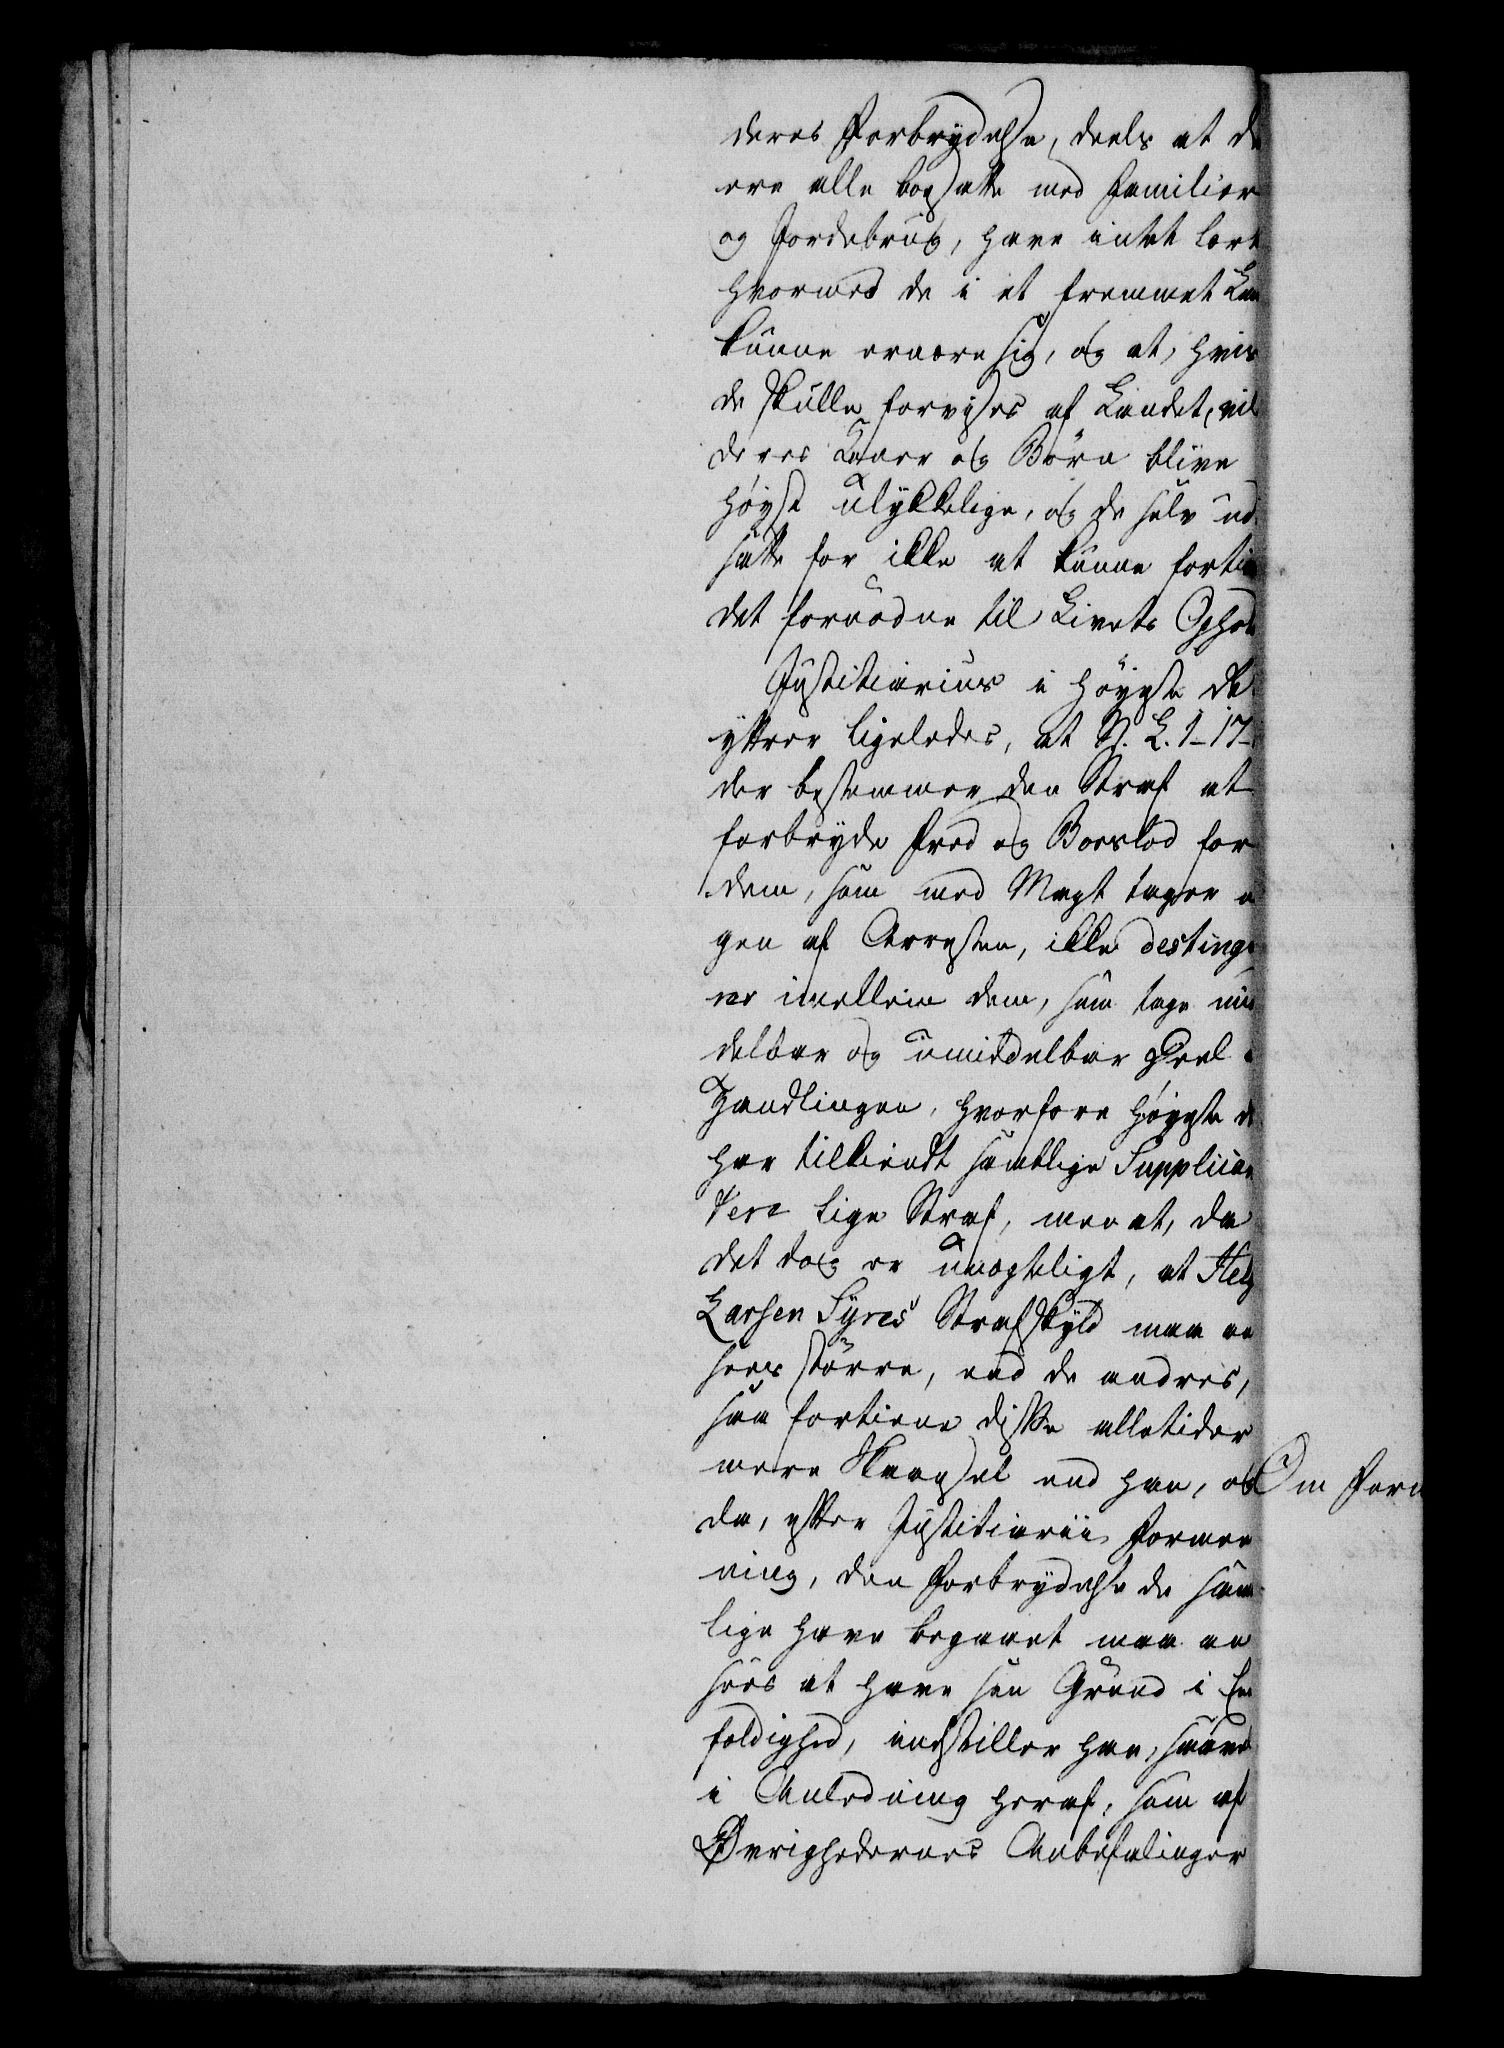 deres Forbrydelse, deels at de
ere alle bosatte med Familier
og Jordebrug, have intet lært
hvormed de i et fremmet Lan
kunne ernære sig, og at, hvis
de skulle forvises af Landet, vil
deres Koner og Børn blive
høyst ulykkelige, og de selv ud
satte for ikke at kunne fortie
det fornødne til Livets Ophol
Justitiarius i Høyeste
yttrer ligeledes, at N. L. 1-17-
der bestemmer den Straf at
forbryde Fred og Boeslod for
dem, som med Magt tager
gen af Arresten, ikke destinge
rer imellem dem, som tage mid
delbar og umiddelbar Deel i
Handlingen, hvorfore Høyeste
har tilkiendt samtlige Supplican
tere lige Straf, men at, da
det dog er unægteligt, at Helg
Larsen Syres Strafskyld maa an
sees større, end de andres,
saa fortiene disse alletider
mere Skaansel end han, og
da, efter Justitiarii Formee
ning, den Forbrydelse de sam
lige have begaaet maa an
sees at have sin Grund i En
foldighed, indstiller han, saavel
i Anledning heraf, som af
Øvrighedernes Anbefalinger
Om Forn